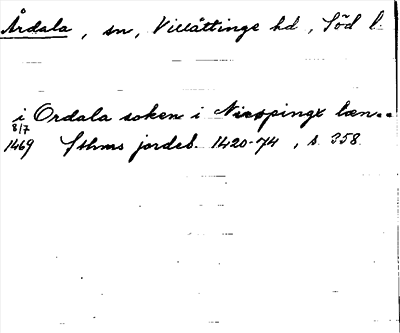 Årdala, sn, Villåttinge hd, Söd l.
i Ordala soken i Nicopinge læn..
8/7
1469 Sthms jordeb. 1420-74, s. 358.